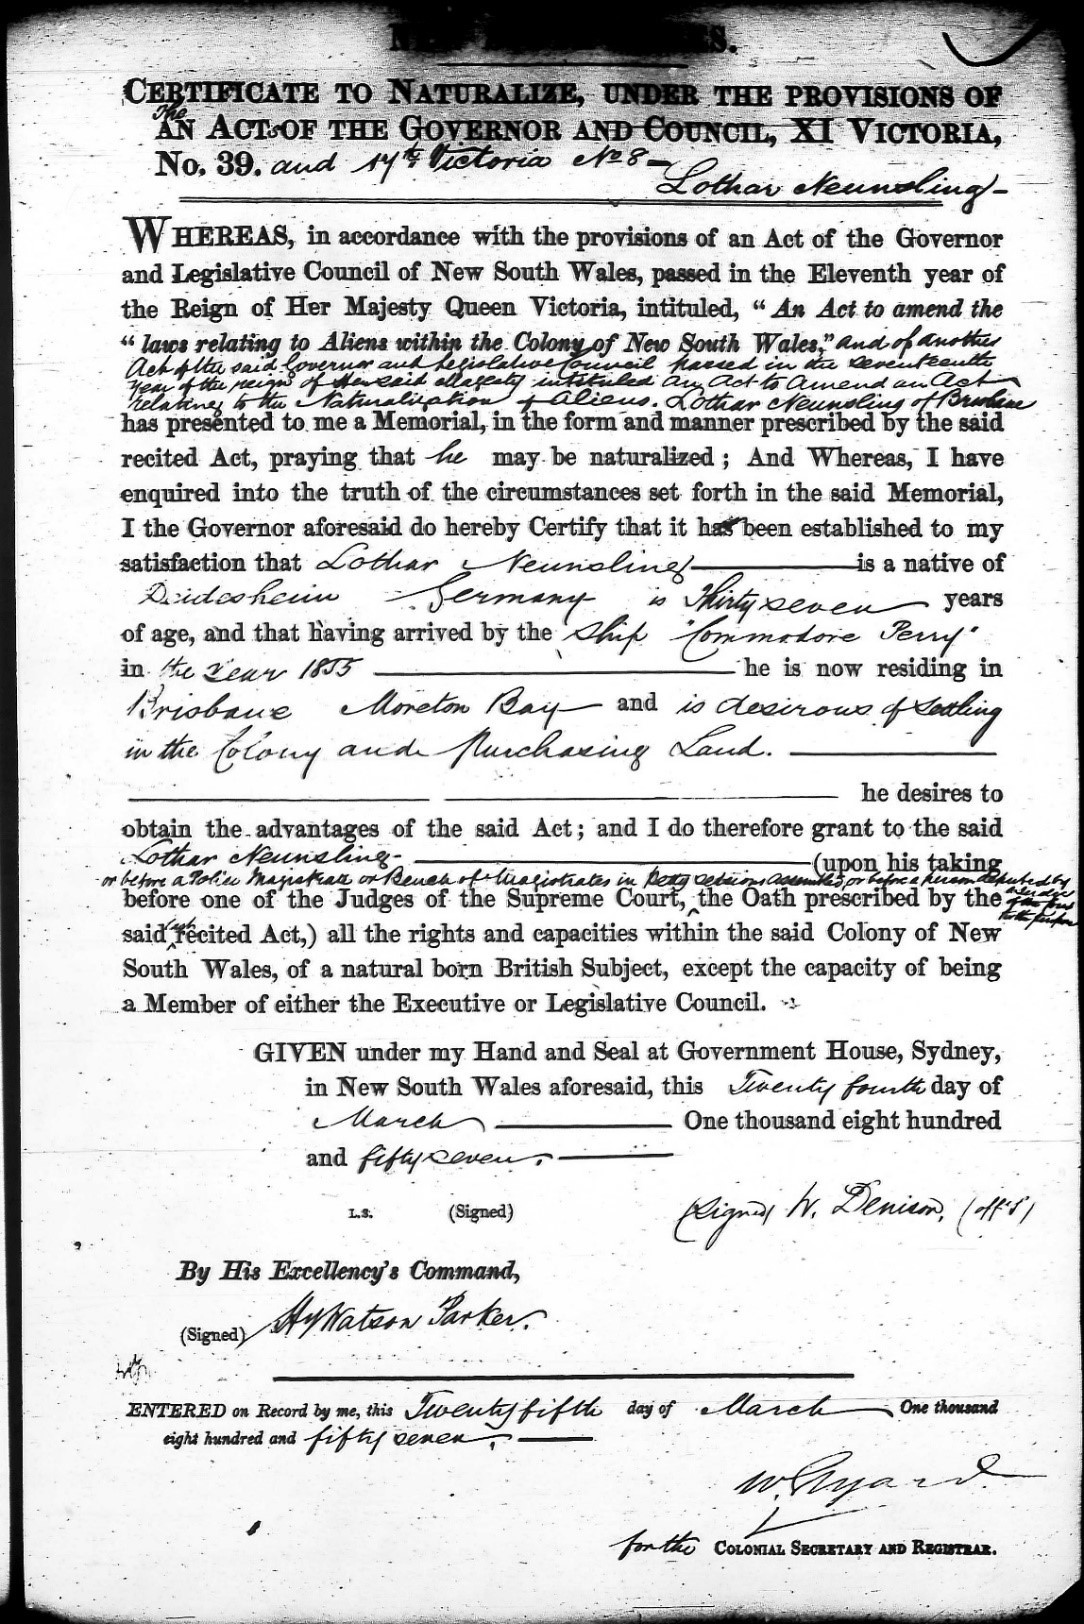 CERTIFICATE TO NATURALIZE, UNDER THE PROVISIONS OF
The
AN ACTS OF THE GOVERNOR AND COUNCIL, XI VICTORIA,
No. 39. and 17th Victoria No 8 —
Lothar Neunsling —
WHEREAS, in accordance with the provisions of an Act of the Governor
and Legislative Council of New South Wales, passed in the Eleventh year of
the Reign of Her Majesty Queen Victoria, intituled, "An Act to amend the
"laws relating to Aliens within the Colony of New South Wales," and of another
Act of the said Governor and Legislative Council passed in the seventeenth
year of the reign of Her said Majesty intituled an Act to Amend an Act
relating to the Naturalization of Aliens. Lothar Neunsling of Brisbane
has presented to me a Memorial, in the form and manner prescribed by the said
recited Act, praying that he may be naturalized; And Whereas, I have
enquired into the truth of the circumstances set forth in the said Memorial,
I the Governor aforesaid do hereby Certify that it has been established to my
satisfaction that Lothar Neunsling is a native of
Deidesheim Germany is Thirty seven years
of age, and that having arrived by the Ship "Commodore Perry"
in the Year 1855 he is now residing in
Brisbane Moreton Bay and is desirous of settling
in the Colony and Purchasing Land.
he desires to
obtain the advantages of the said Act; and I do therefore grant to the said
Lothar Neunsling (upon his taking
or before a Police Magistrate or Bench of Magistrates in Petty sessions assembled, or before a person deputed by
before one of the Judges of the Supreme Court, the Oath prescribed by the
said recited Act,) all the rights and capacities within the said Colony of New
South Wales, of a natural born British Subject, except the capacity of being
a Member of either the Executive or Legislative Council.
GIVEN under my Hand and Seal at Government House, Sydney,
in New South Wales aforesaid, this Twenty fourth day of
March One thousand eight hundred
and fifty seven.
L.S. (Signed) (signed) W. Denison,
By His Excellency's Command,
(Signed) Hy Watson Parker.
ENTERED on Record by me, this Twenty fifth day of March One thousand
eight hundred and fifty seven.
W. Elyard
for the COLONIAL SECRETARY AND REGISTRAR.